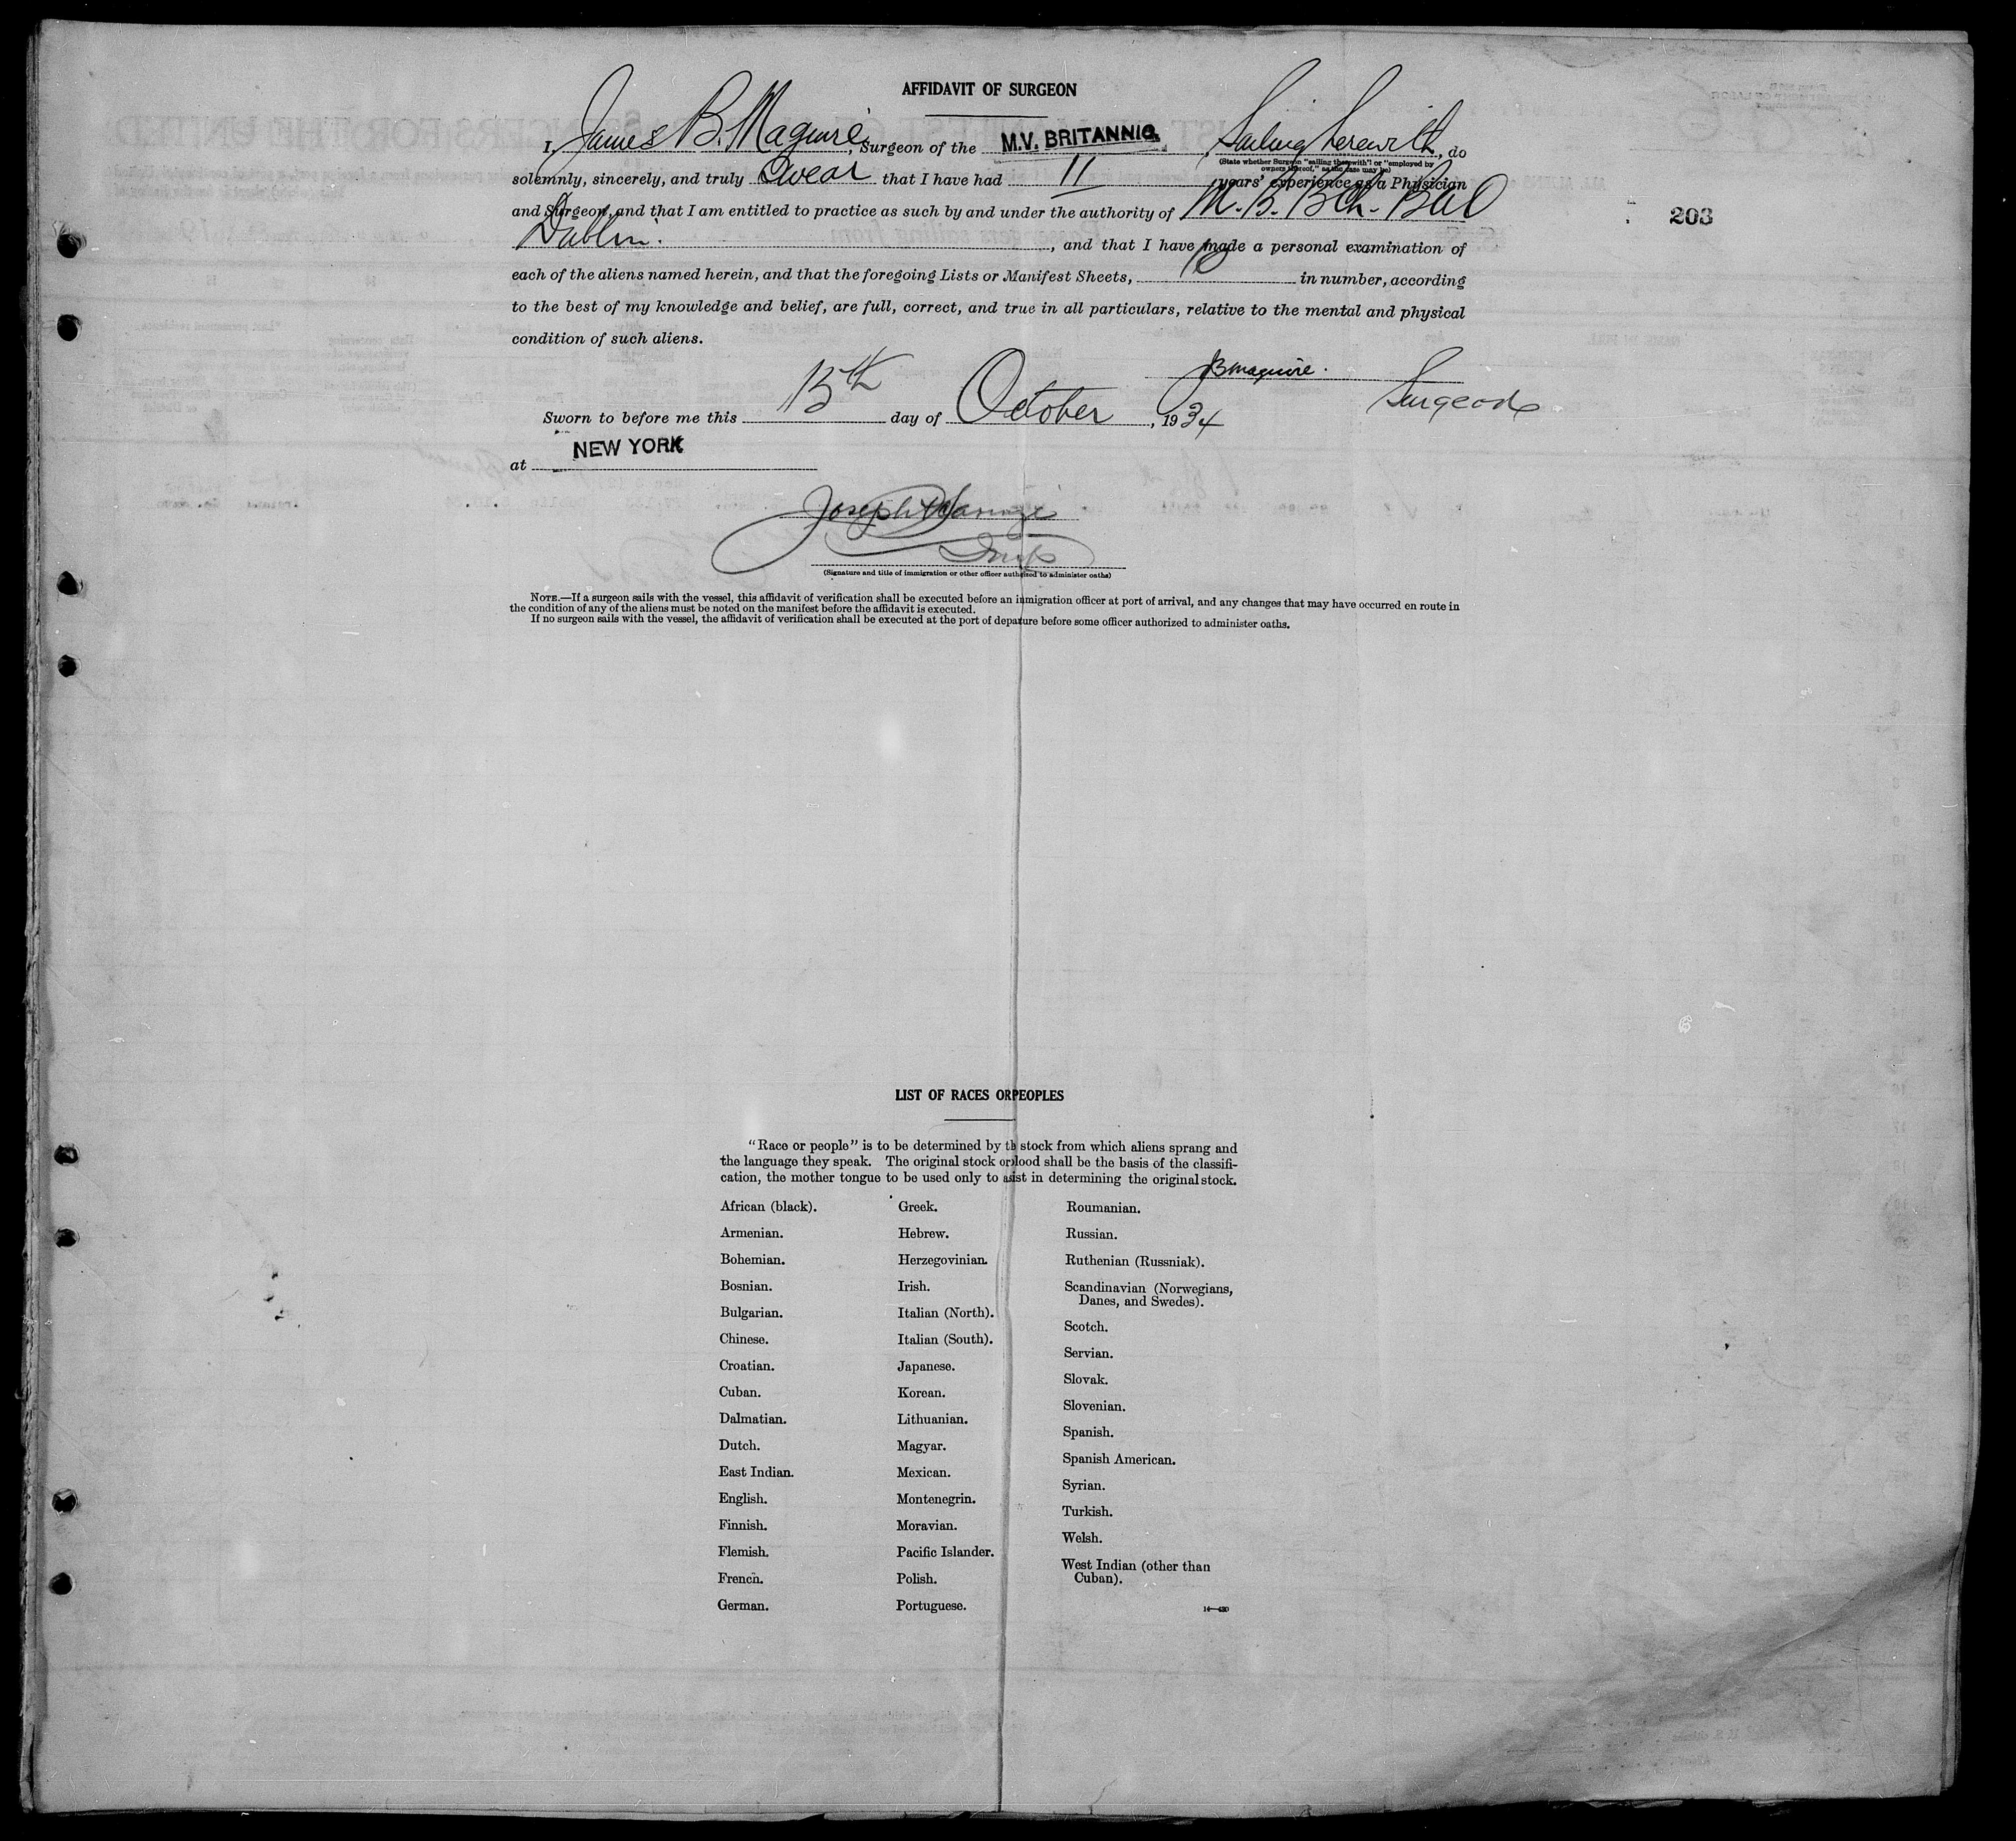 AFFIDAVIT OF SURGEON
I, James B. Maguire, Surgeon of the M.V. BRITANNIC, Sailing herewith, do
(State whether Surgeon "sailing therewith" or "employed by
owners thereof," as the case may be)
solemnly, sincerely, and truly swear that I have had 11 years' experience as a Physician
and Surgeon, and that I am entitled to practice as such by and under the authority of M.B. BCh. BAO
203
Dublin., and that I have made a personal examination of
each of the aliens named herein, and that the foregoing Lists or Manifest Sheets, in number, according
to the best of my knowledge and belief, are full, correct, and true in all particulars, relative to the mental and physical
condition of such aliens.
JBMaguire.
Surgeon
Sworn to before me this 15th day of October, 1934
at NEW YORK
Joseph
Insp
(Signature and title of immigration or other officer authorized to administer oaths)
NOTE.—If a surgeon sails with the vessel, this affidavit of verification shall be executed before an inmigration officer at port of arrival, and any changes that may have occurred en route in
the condition of any of the aliens must be noted on the manifest before the affidavit is executed.
If no surgeon sails with the vessel, the affidavit of verification shall be executed at the port of depature before some officer authorized to administer oaths.
LIST OF RACES OR PEOPLES
"Race or people" is to be determined by th stock from which aliens sprang and
the language they speak. The original stock or blood shall be the basis of the classifi-
cation, the mother tongue to be used only to assist in determining the original stock.
African (black).
Armenian.
Bohemian.
Bosnian.
Bulgarian.
Chinese.
Croatian.
Cuban.
Dalmatian.
Dutch.
East Indian.
English.
Finnish.
Flemish.
French.
German.
Greek.
Hebrew.
Herzegovinian.
Irish.
Italian (North).
Italian (South).
Japanese.
Korean.
Lithuanian.
Magyar.
Mexican.
Montenegrin.
Moravian.
Pacific Islander.
Polish.
Portuguese.
Roumanian.
Russian.
Ruthenian (Russniak).
Scandinavian (Norwegians,
Danes, and Swedes).
Scotch.
Servian.
Slovak.
Slovenian.
Spanish.
Spanish American.
Syrian.
Turkish.
Welsh.
West Indian (other than
Cuban).